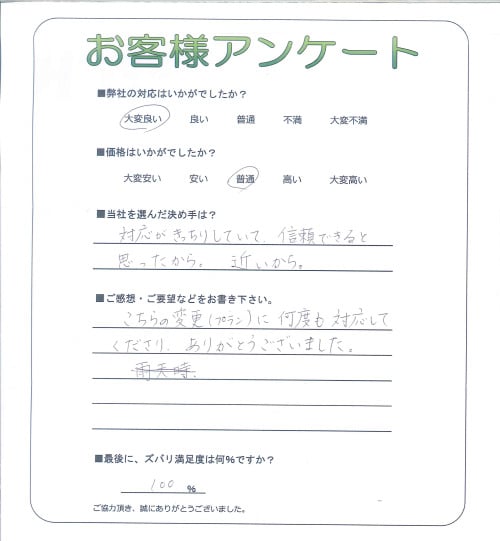 お客様アンケート
■弊社の対応はいかがでしたか?
大変良い 良い 普通 不満 大変不満
■価格はいかがでしたか?
大変安い 安い 普通 高い 大変高い
■当社を選んだ決め手は?
対応がきっちりしていて、信頼できると
思ったから。 近いから。
■ご感想・ご要望などをお書き下さい。
こちらの変更(プラン)に何度も対応して
くださり、ありがとうございました。
雨天時、
■最後に、ズバリ満足度は何%ですか?
100 %
ご協力頂き、誠にありがとうございました。